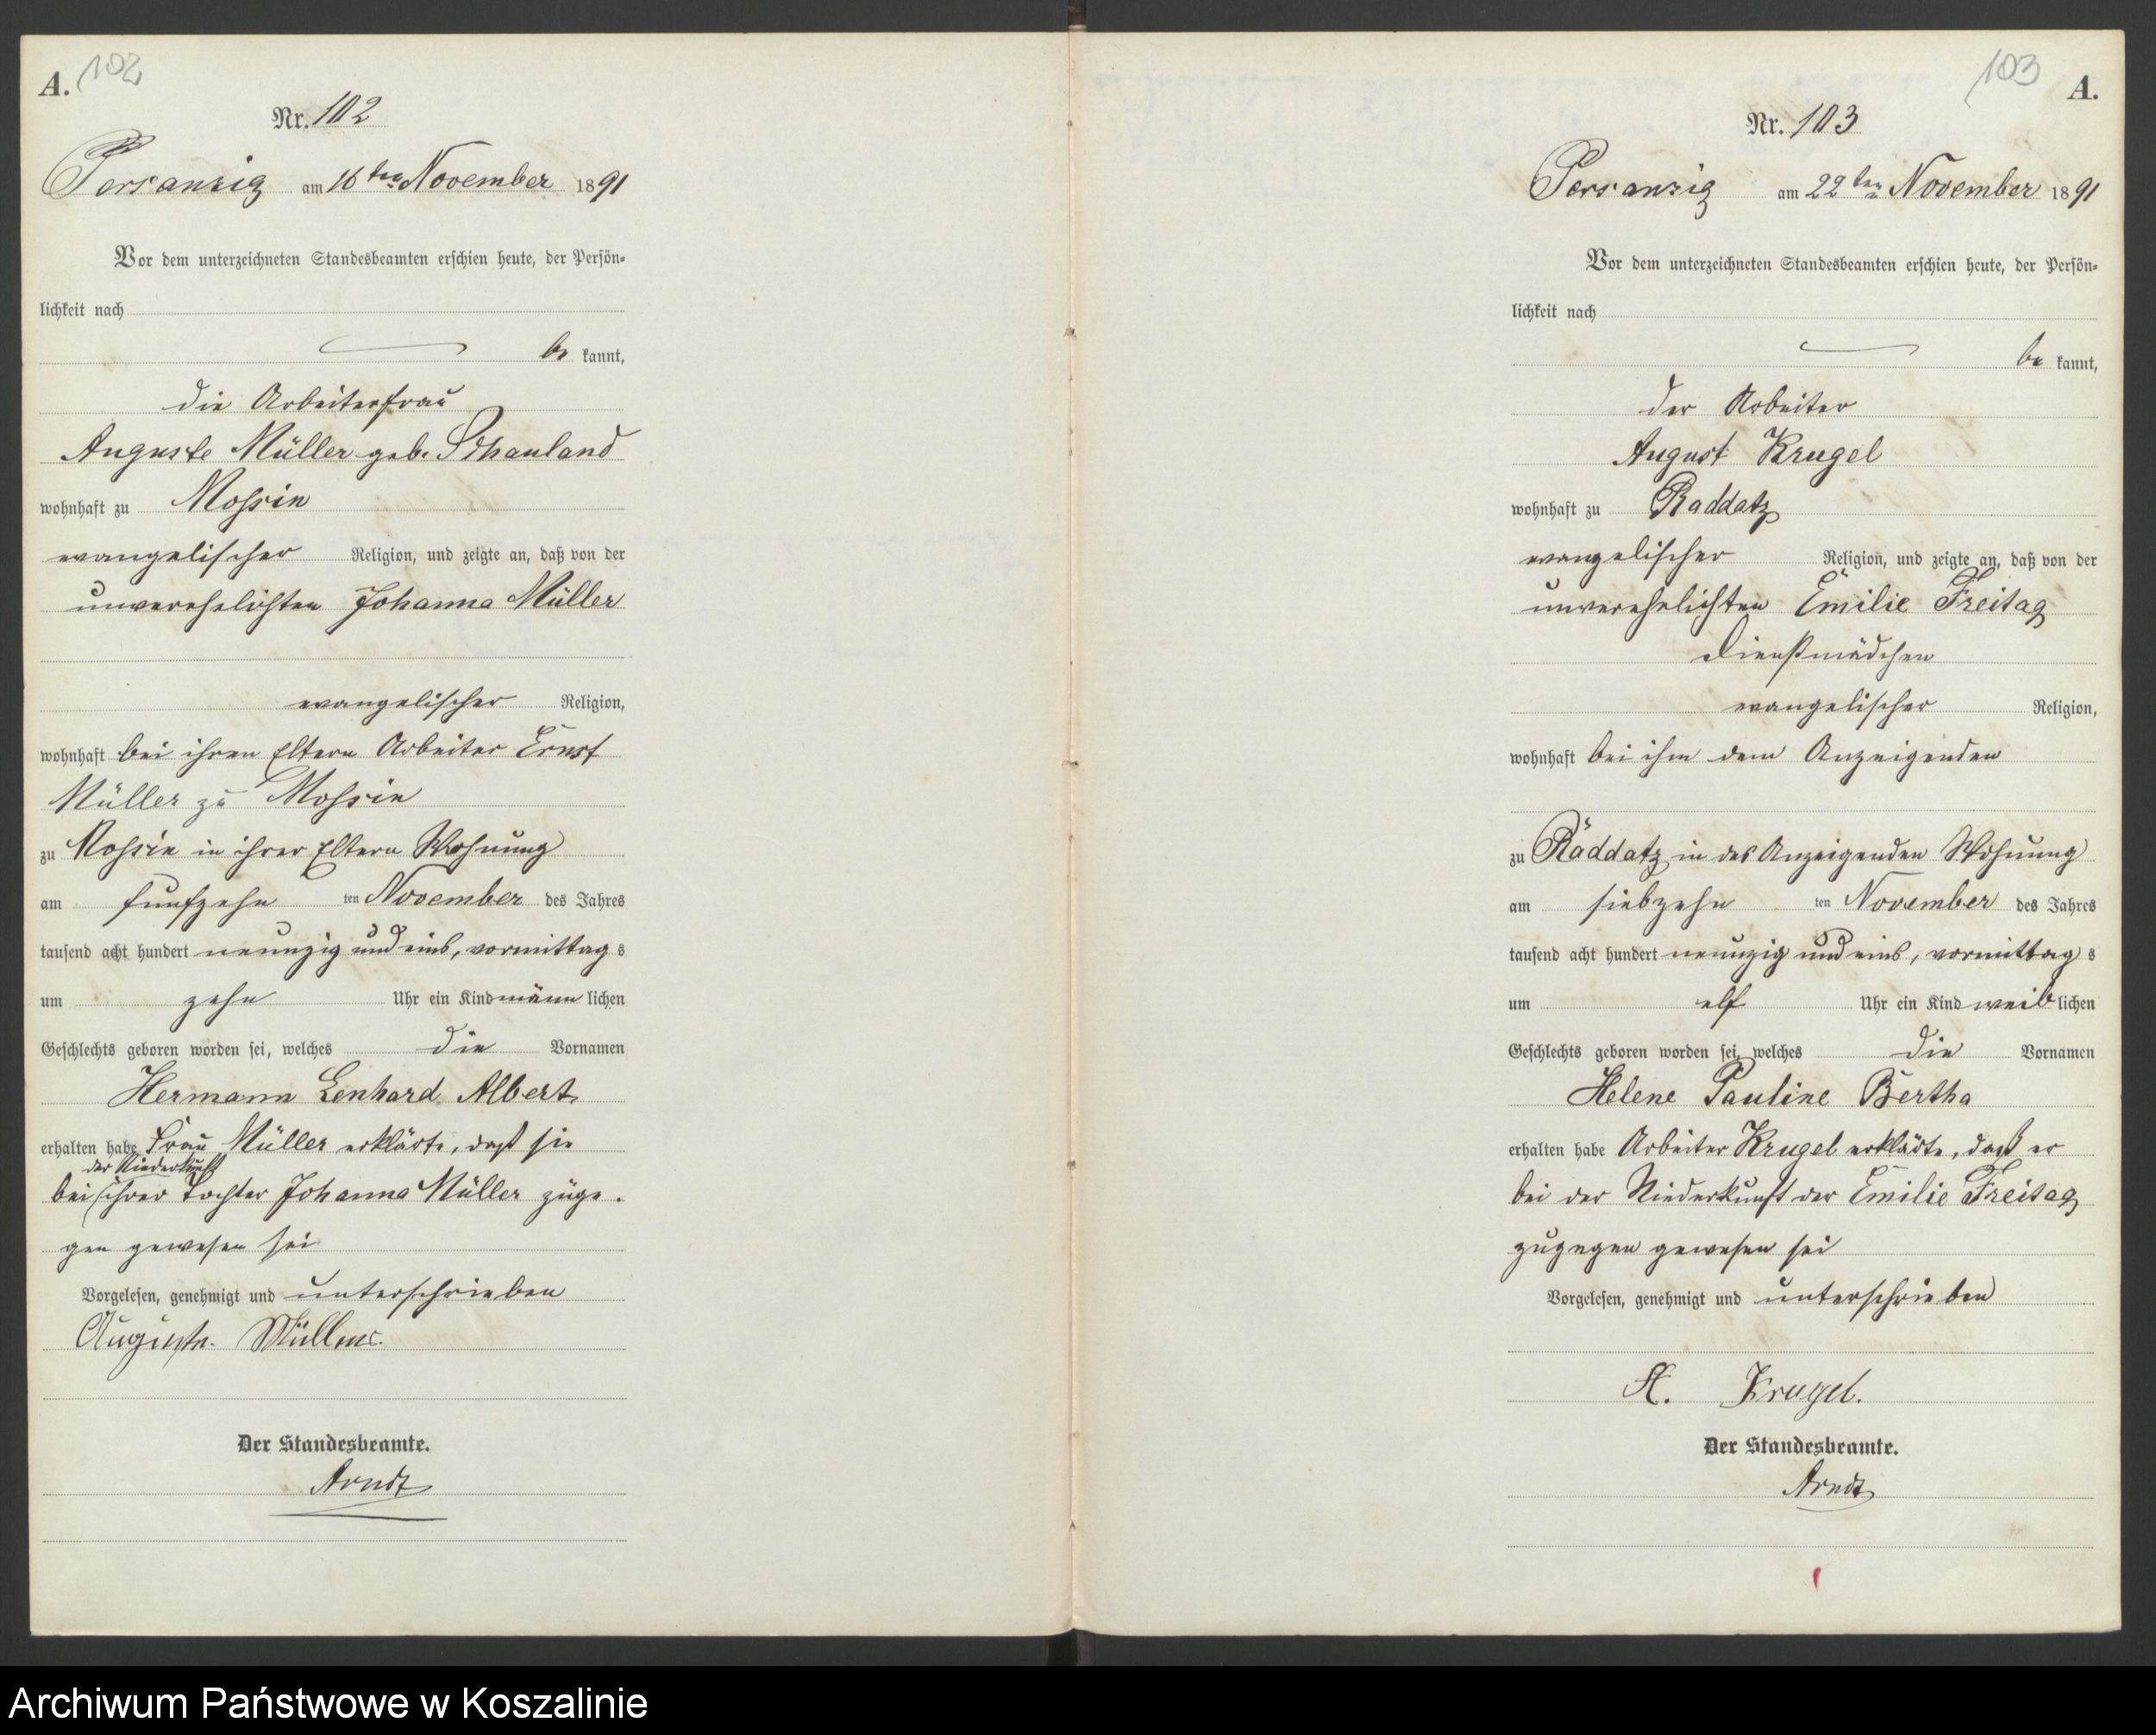 A. 102
Nr. 102
Persanzig am 16ten November 1891
Vor dem unterzeichneten Standesbeamten erschien heute, der Persön-
lichkeit nach
be kannt,
die Arbeiterfrau
Auguste Müller geb. Schauland
wohnhaft zu Mossin
evangelischer Religion, und zeigte an, daß von der
unverehelichten Johanna Müller
evangelischer Religion,
wohnhaft bei ihren Eltern Arbeiter Ernst
Müller zu Mossin
zu Mossin in ihrer Eltern Wohnung
am funfzehn ten November des Jahres
tausend acht hundert neunzig und eins, vormittag s
um zehn Uhr ein Kind männ lichen
Geschlechts geboren worden sei, welches die Vornamen
Hermann Lenhard Albert
erhalten habe Frau Müller erklärte, daß sie
der Niederkunft
bei ihrer Tochter Johanna Müller zuge-
gen gewesen sei
Vorgelesen, genehmigt und unterschrieben
Auguste Müller.
Der Standesbeamte.
Arndt
103 A.
Nr. 103
Persanzig am 22ten November 1891
Vor dem unterzeichneten Standesbeamten erschien heute, der Persön-
lichkeit nach
be kannt,
der Arbeiter
August Krugel
wohnhaft zu Raddatz
evangelischer Religion, und zeigte an, daß von der
unverehelichten Emilie Freitag
Dienstmädchen
evangelischer Religion,
wohnhaft bei ihm dem Anzeigenden
zu Räddatz in des Anzeigenden Wohnung
am siebzehn ten November des Jahres
tausend acht hundert neunzig und eins, vormittag s
um elf Uhr ein Kind weib lichen
Geschlechts geboren worden sei, welches die Vornamen
Helene Pauline Bertha
erhalten habe Arbeiter Krugel erklärte, daß er
bei der Niederkunft der Emilie Freitag
zugegen gewesen sei
Vorgelesen, genehmigt und unterschrieben
A. Krugel.
Der Standesbeamte.
Arndt
Archiwum Państwowe w Koszalinie